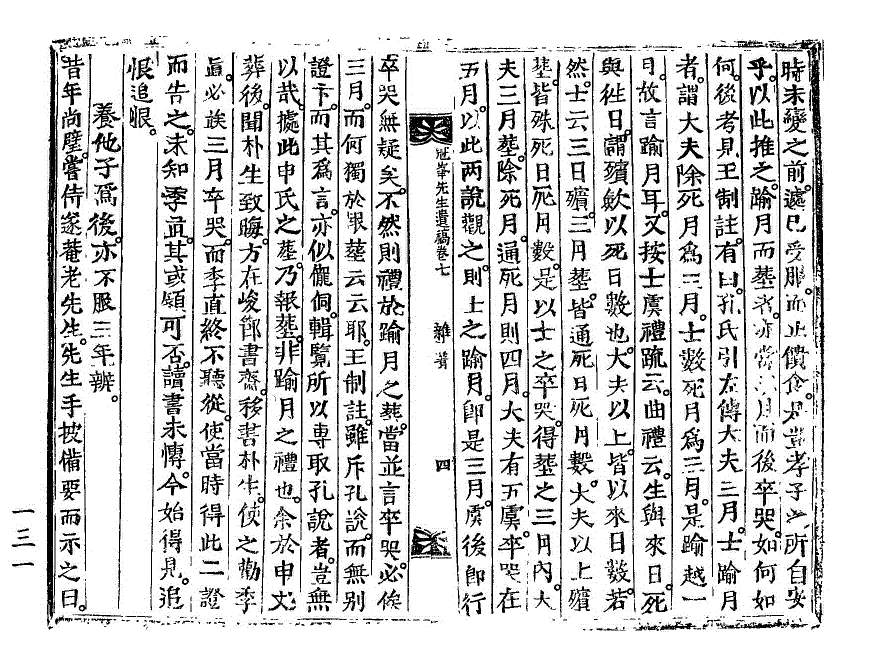 時未變之前遽已受服而止饋食是豈孝子之所自安
乎以此推之踰月而葬者亦當三月而後卒哭如何如
何後考見王制註有曰孔氏引左傳大夫三月士踰月
者謂大夫除死月爲三月士數死月爲三月是踰越一
月故言踰月耳又按士虞禮疏云曲禮云生與來日死
與徃日謂殯歛以死日數也大夫以上皆以來日數若
然士云三日殯三月葬皆通死日死月數大夫以上殯
葬皆殊死日死月數是以士之卒哭得葬之三月內大
夫三月葬除死月通死月則四月大夫有五虞卒哭在
五月以此两說觀之則士之踰月卽是三月虞後卽行
冠峯先生遺稿卷七 雜著 四
卒哭無疑矣不然則禮於踰月之葬當並言卒哭必俟
三月而何獨於報葬云云耶王制註雖斥孔說而無別
證卞而其爲言亦似儱侗輯覽所以専取孔說者豈無
以哉據此申氏之葬乃報葬非踰月之禮也余於申丈
葬後聞朴生致晦方在峻卿書齋移書朴生使之勸李
直必族三月卒哭而李直終不聽從使當時得此二證
而告之未知季直其或頷可否讀書未慱今始得見追
恨追恨
養他子爲後亦不服三年辨
昔年尚璧嘗侍遂菴老先生先生手披備要而示之曰
一三一